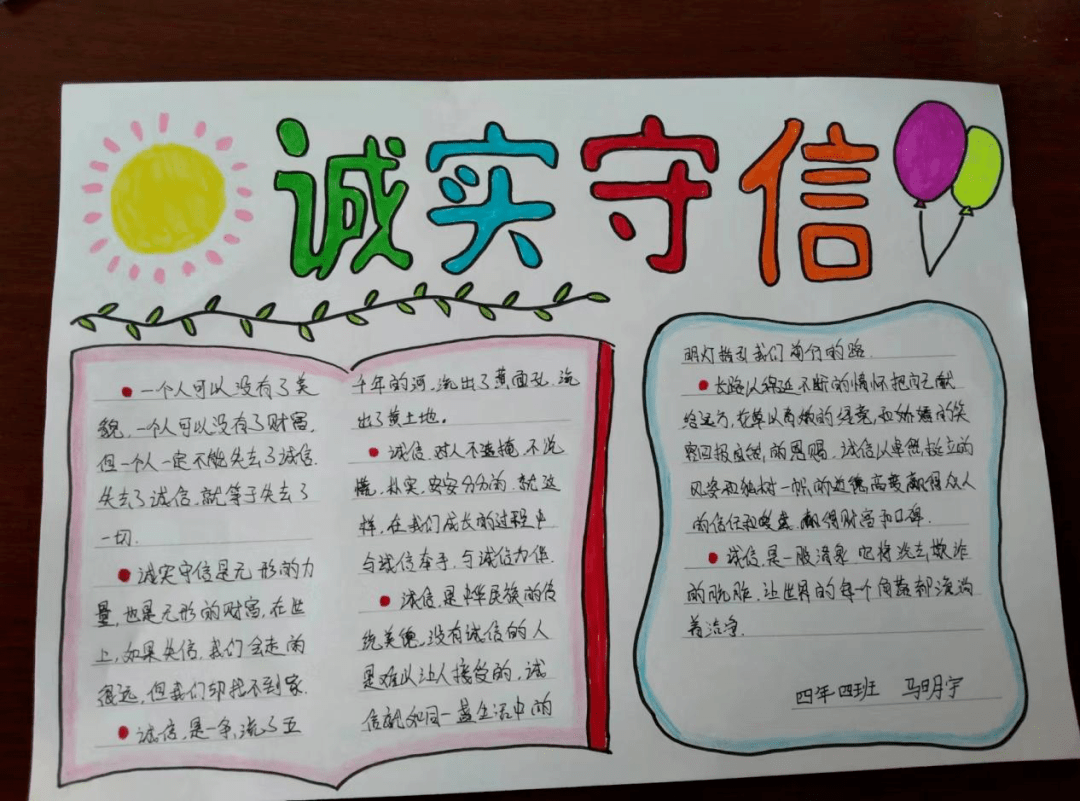 诚实守信
一个人可以没有了美
貌，一个人可以没有了财富，
但一个人一定不能失去了诚信.
失去了诚信，就等于失去了
一切.
诚实守信是无形的力
量，也是无形的财富，在世
上，如果失信，我们会走的
很远，但我们却找不到家.
诚信，是一条，流了五
千年的河，流出了黄面孔，流
出了黄土地。
诚信，对人不遮掩，不说
慌，朴实，安安分分的，就这
样，在我们成长的过程中
与诚信牵手，与诚信为伴.
诚信，是中华民族的传
统美德，没有诚信的人
是难以让人接受的，诚
信就如同一盏生活中的
明灯指引我们前行的路.
长路以绵延不断的情怀把自己献
给远方，花草以奇嫩的绿意，和娇媚的笑
容回报自然，的恩赐，诚信以卓然挺立的
风姿和独树一帜的道德高度赢得众人
的信任和爱戴，赢得财富和口碑.
诚信，是一股清泉，它将洗去欺诈
的肮脏，让世界的每一个角落都流淌
着洁净.
四年四班 马明宇